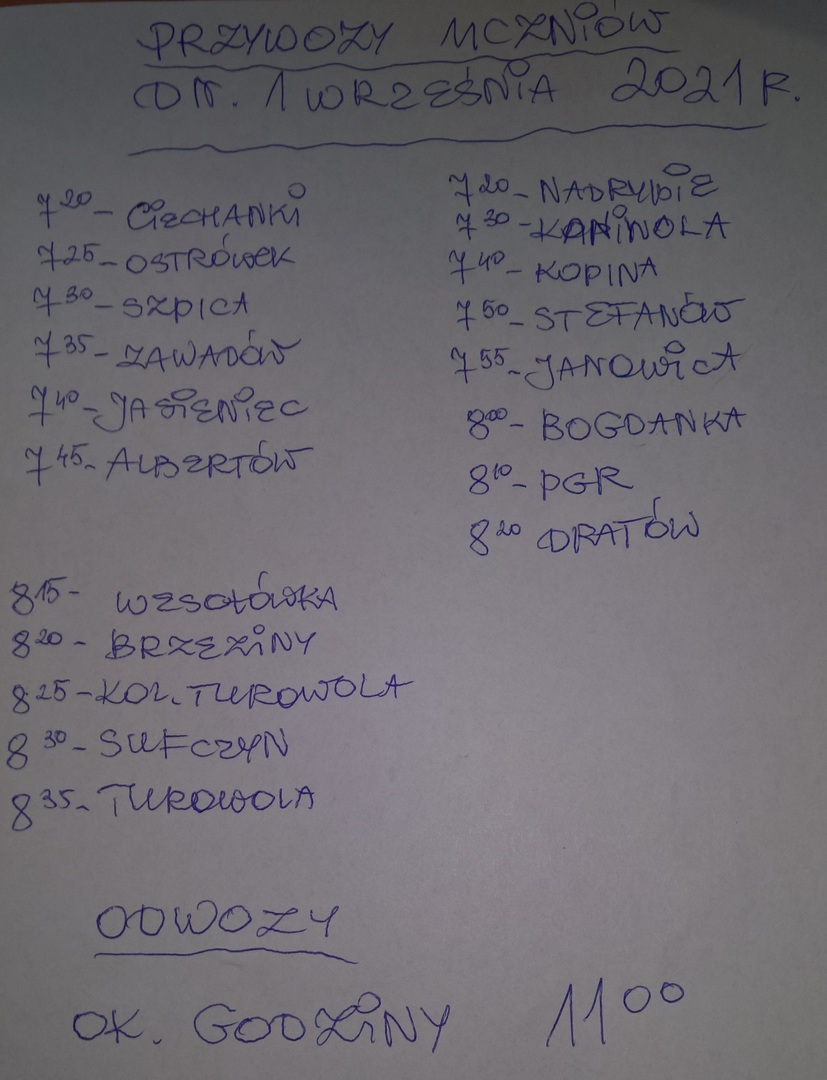 PRZYWOZY UCZNIÓW
DN. 1 WRZEŚNIA 2021 R.
7 20 - CIECHANKI
7 25 - OSTRÓWEK
7 30 - SZPICA
7 35 - ZAWADÓW
7 40 - JASIENIEC
7 45 - ALBERTÓW
7 20 - NADRYBIE
7 30 - KANIWOLA
7 40 - KOPINA
7 50 - STEFANÓW
7 55 - JANOWICA
8 00 - BOGDANKA
8 10 - PGR
8 20 DRATÓW
8 15 - WESOŁÓWKA
8 20 - BRZEZINY
8 25 - KOL. TUROWOLA
8 30 - SUFCZYN
8 35 - TUROWOLA
ODWOZY
OK. GODZINY 11 00